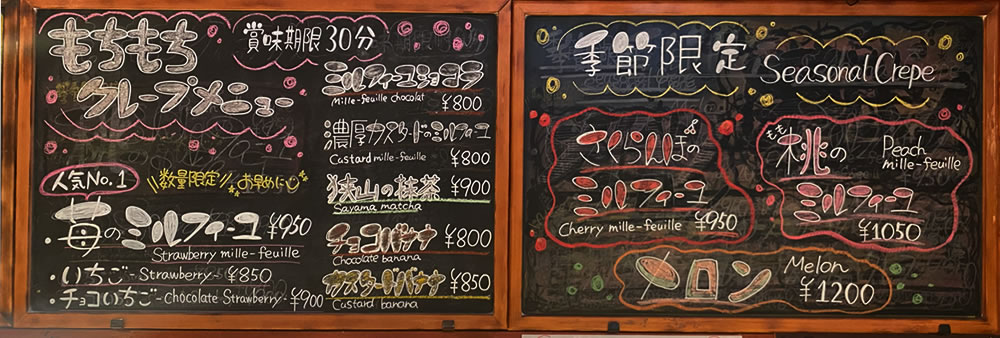 もちもち
クレープメニュー
賞味期限30分
人気No.1
数量限定
お早めに
・苺のミルフィーユ ¥950
Strawberry mille-feuille
・いちご-Strawberry- ¥850
・チョコいちご-Chocolate Strawberry- ¥900
ミルフィーユショコラ
Mille-feuille chocolat ¥800
濃厚カスタードのミルフィーユ
Custard mille-feuille ¥800
狭山の抹茶 ¥900
Sayama matcha
チョコバナナ ¥800
Chocolate banana
カスタードバナナ ¥850
Custard banana
季節限定 Seasonal Crepe
さくらんぼの
ミルフィーユ
Cherry mille-feuille ¥950
もも
桃の Peach
mille-feuille
ミルフィーユ
¥1050
メロン Melon
¥1200